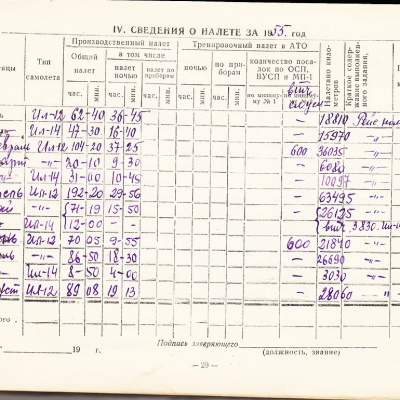 IV. СВЕДЕНИЯ О НАЛЕТЕ ЗА 1955 год
Тип самолета
Производственный налет
Общий налет
в том числе
налет ночью
налет по приборам
Тренировочный налет в АТО
ночью
по приборам
количество посадок по ОСП, ВУСП и МП-1
Налетано километров
Краткое содержание выполненного задания,
час. мин. час. мин. час. мин. час. мин. час. мин.
Ил-12 62-40 36-45 18810 Рейс
Ил-14 47-30 16-40 15970 -"-
Ил-12 104-20 37-25 600 36035 -"-
-"- 20-10 9-30 6080 -"-
Ил-14 31-00 10-45 10097 -"-
Ил-12 192-20 29-56 63495 -"-
-"- 71-19 15-50 26125 -"-
Ил-14 12-00 - - 3830 Ил-14
Ил-12 70 05 9-55 600 21840 -"-
-"- 86-50 18-30 26690 -"-
Ил-14 8-50 4-00 3030 -"-
Ил-12 89 08 19 13 28060 -"-
19 г.
Подпись заверяющего
(должность, звание)
— 29 —